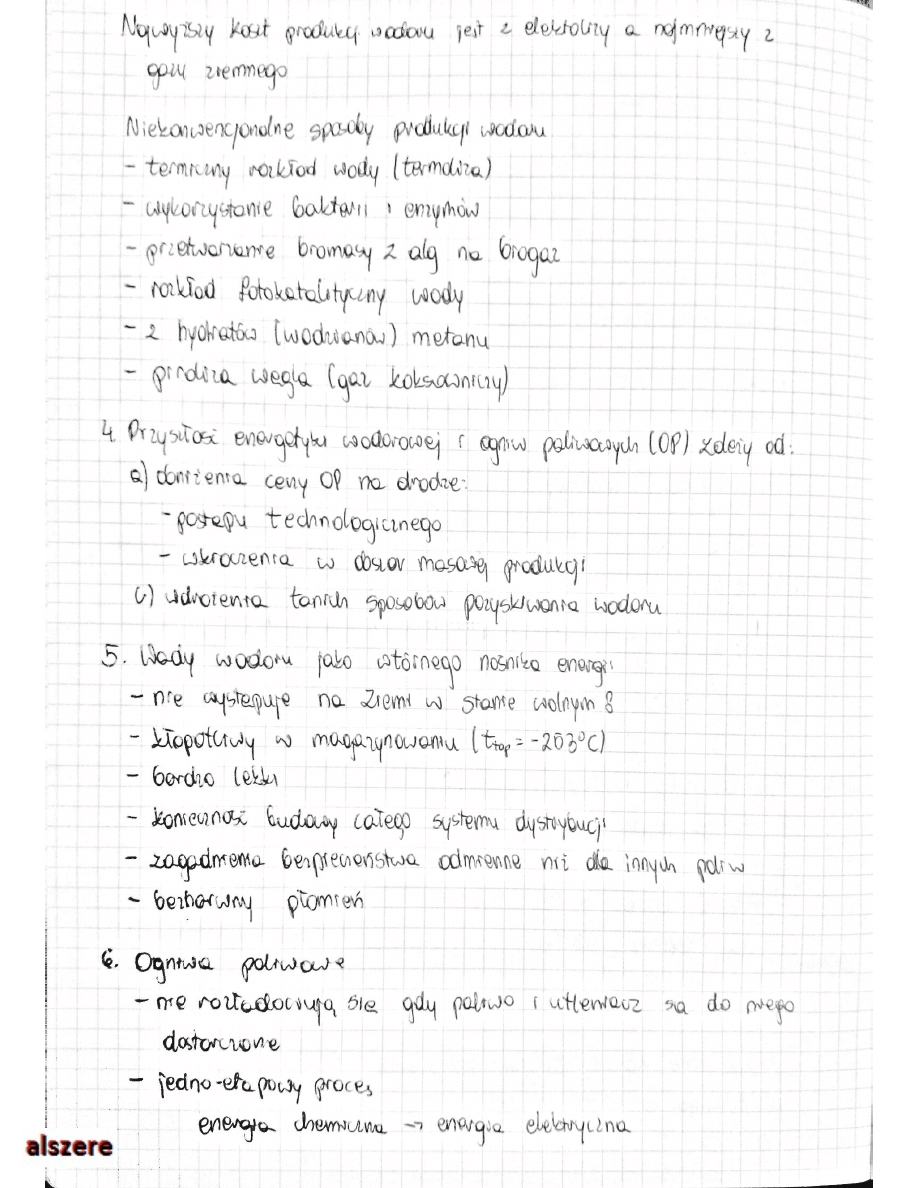 Najwyższy koszt produkcji wodoru jest z elektolizy a najmniejszy z
gazu ziemnego
Niekonwencjonalne sposoby produkcji wodoru
- termiczny rozkład wody (termoliza)
- wykorzystanie bakterii i enzymów
- przetwarzanie biomasy z alg na biogaz
- rozkład fotokatalityczny wody
- z hydratów (wodzianów) metanu
- piroliza węgla (gaz koksowniczy)
4. Przyszłość energetyki wodorowej i ogniw paliwowych (OP) zależy od:
a) obniżenia ceny OP na drodze:
- postępu technologicznego
- wkroczenia w obszar masowej produkcji
c) wdrożenia tanich sposobów pozyskiwania wodoru
5. Wady wodoru jako wtórnego nośnika energii
- nie występuje na Ziemi w stanie wolnym
- kłopotliwy w magazynowaniu (t = -203°C)
- bardzo lekki
- konieczność budowy całego systemu dystrybucji
- zagadnienia bezpieczeństwa odmienne niż dla innych paliw
- bezbarwny płomień
6. Ogniwa paliwowe
- nie rozładowują się gdy paliwo i utleniacz są do niego
dostarczone
- jedno-etapowy proces
energia chemiczna → energia elektryczna
alszere